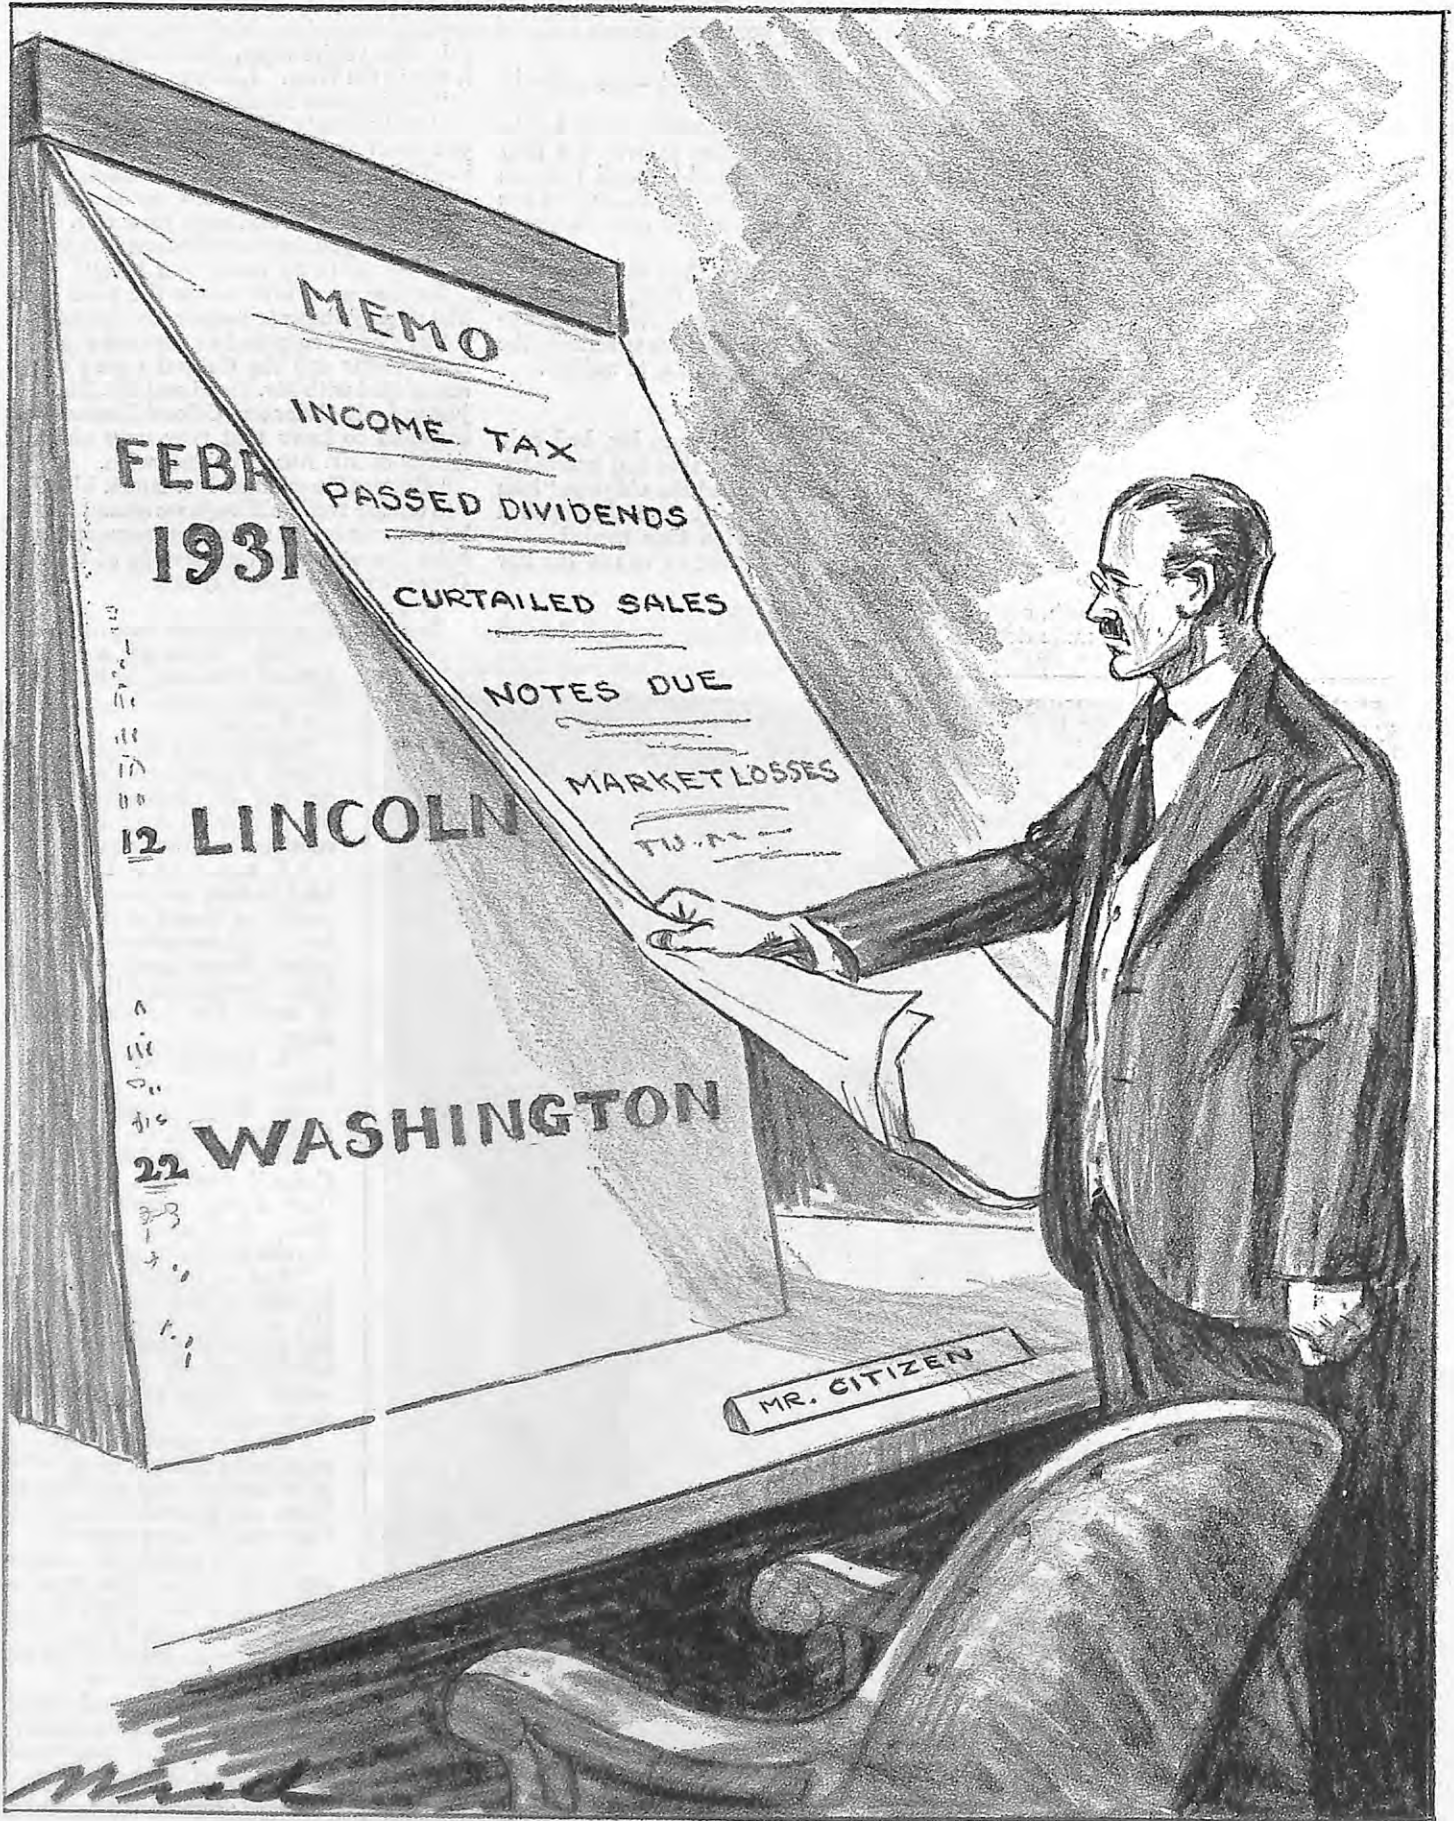 MEMO
INCOME TAX
PASSED DIVIDENDS
CURTAILED SALES
NOTES DUE
MARKET LOSSES
FEBR
1931
12 LINCOLN
22 WASHINGTON
MR. CITIZEN